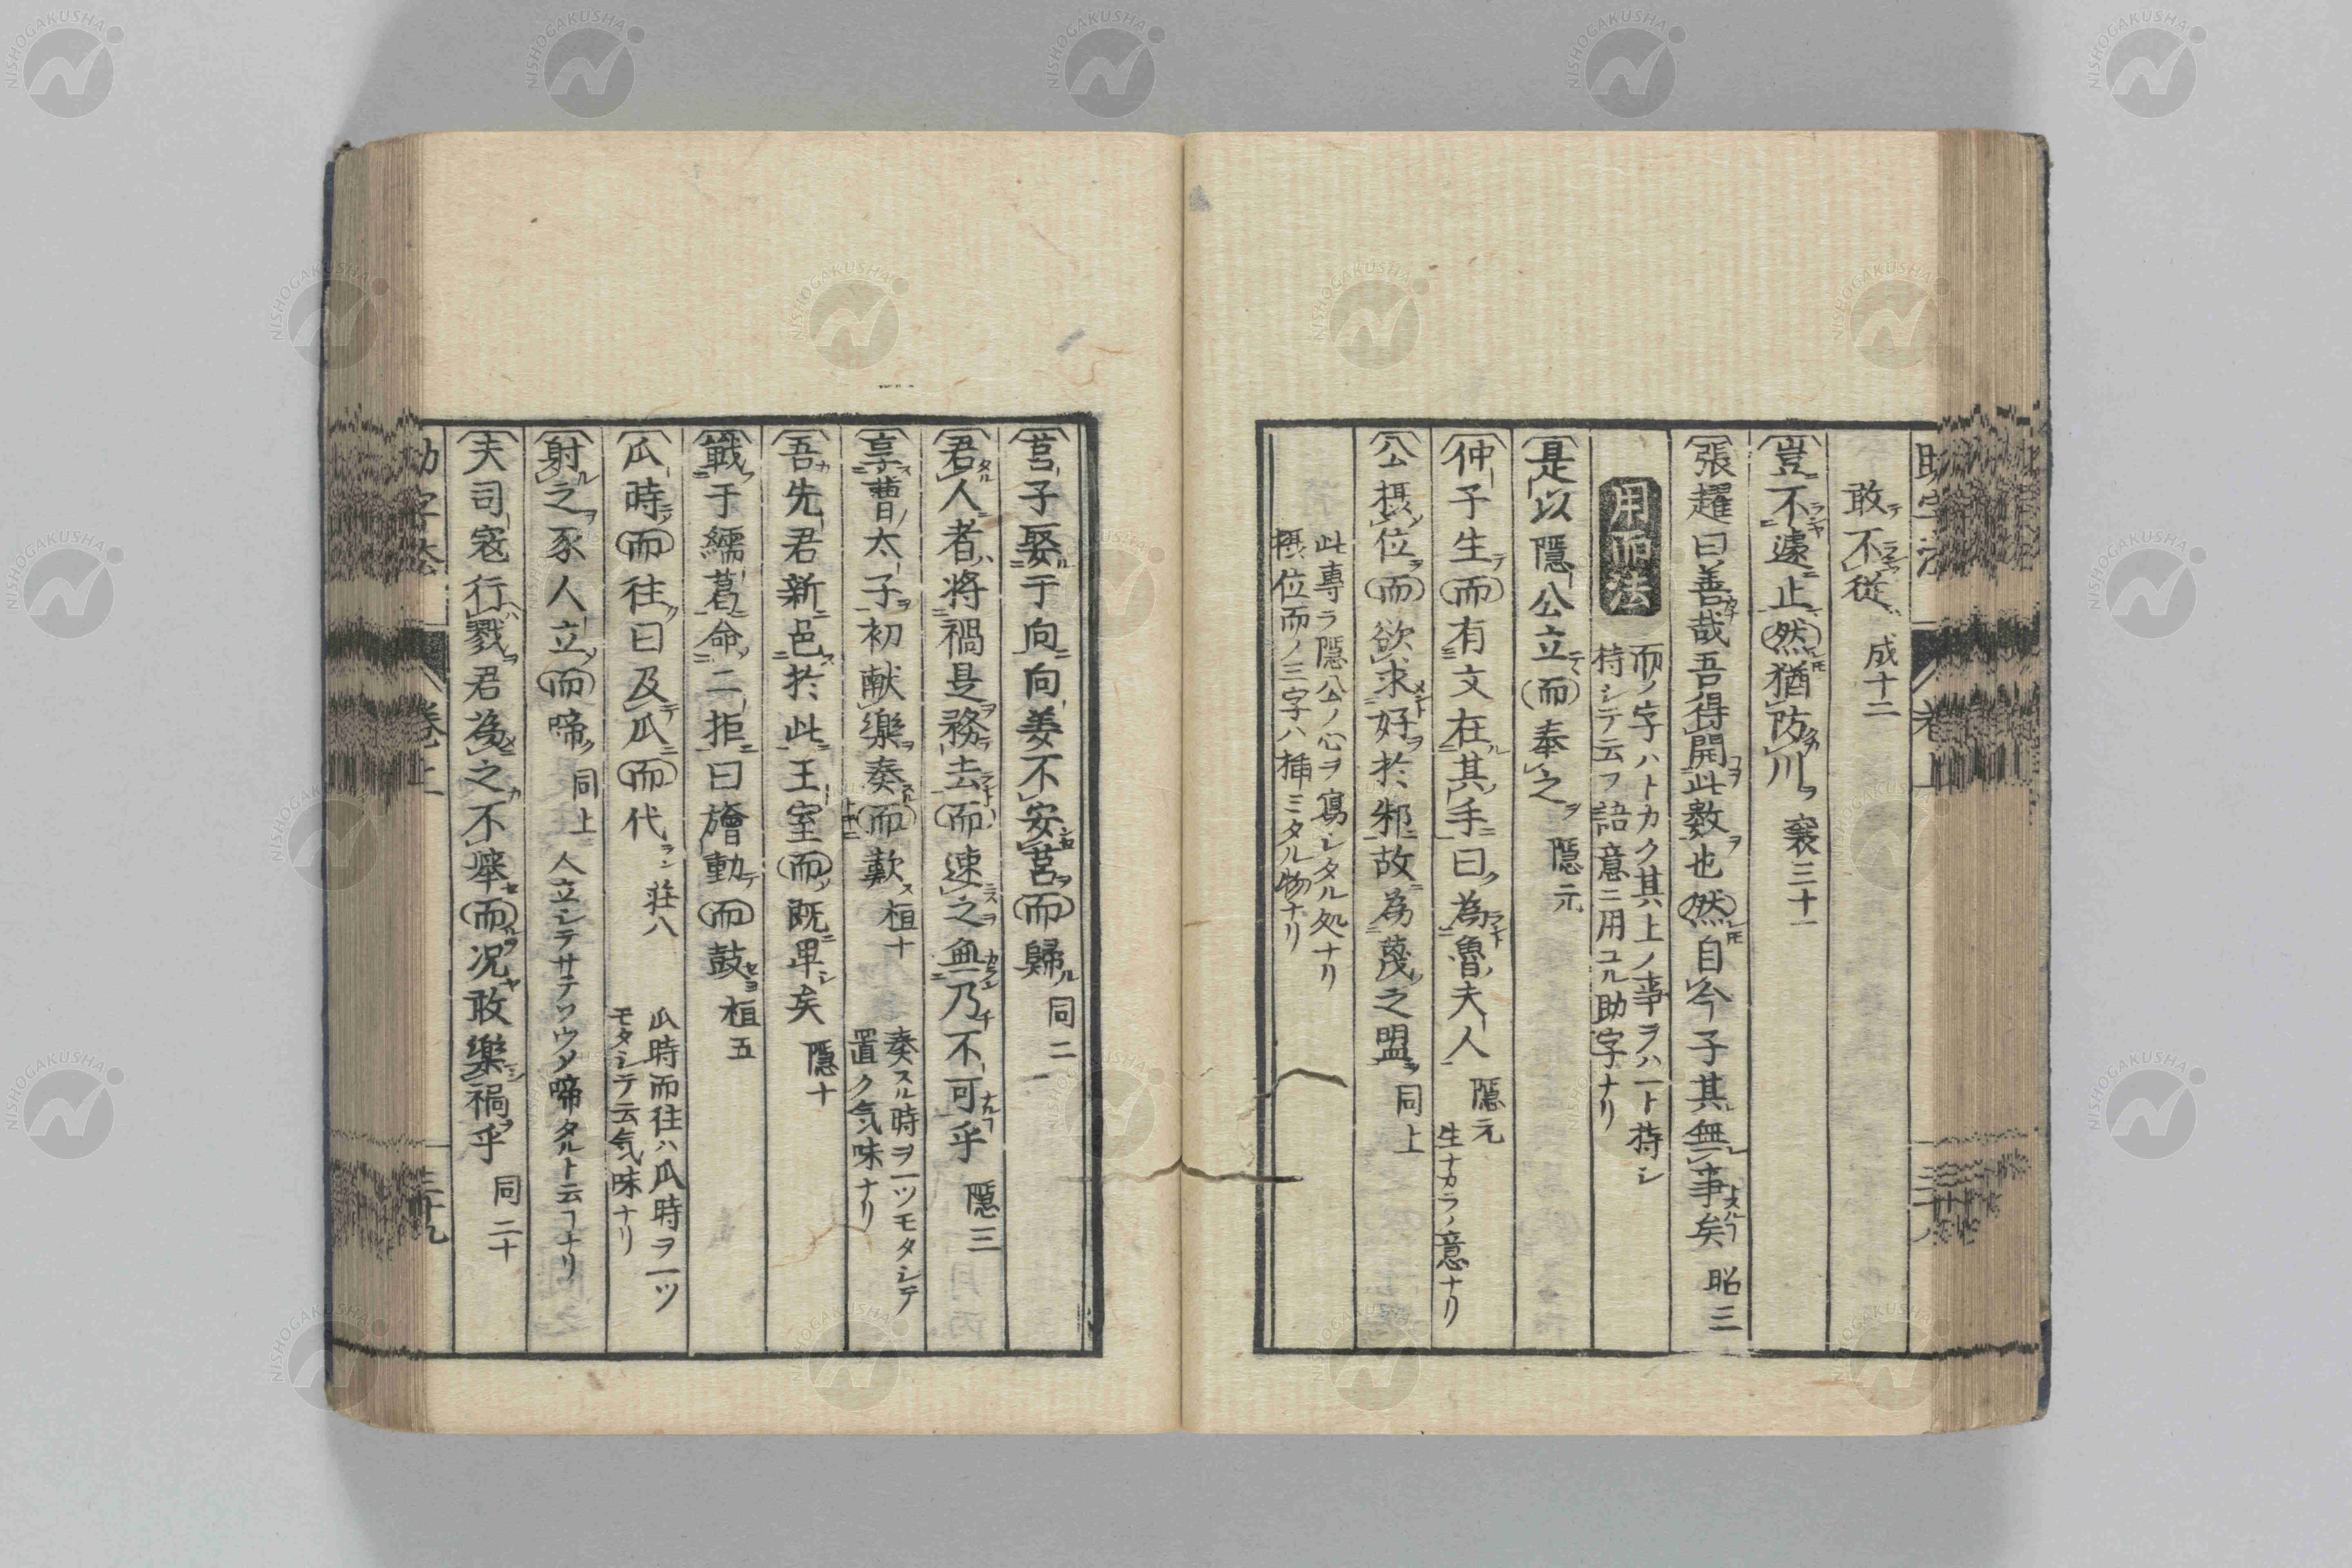 敢不従 成十二
豈不遽止然猶防川 襄三十一
張趯曰善哉吾得聞此數也然自今子其無事矣 昭三
用而法
而ノ字ハトカク其上ノ事ヲハ一ト持シ
持シテ云フ語意ニ用ユル助字ナリ
是以隱公立而奉之 隱元
仲子生而有文在其手曰為魯夫人 隱元
生ナカラノ意ナリ
公摂位而欲求好於邾故為蔑之盟 同上
此專ラ隱公ノ心ヲ寫シタル処ナリ
摂位而ノ三字ハ挿ミタル物ナリ
莒子娶于向向姜不安莒而歸 同二
君人者將禍是務去而速之無乃不可乎 隱三
享曹太子初献樂奏而歎 桓十
奏スル時ヲ一ツモタシテ
置ク気味ナリ
吾先君新邑於此王室而既卑矣 隱十
戰于繻葛命二拒曰旝動而鼓 桓五
瓜時而往曰及瓜而代 莊八
瓜時而往ハ瓜時ヲ一ツ
モタシテ云気味ナリ
射之豕人立而啼 同上
人立シテサテソウメ啼タルト云フナリ
夫司寇行戮君為之不舉而況敢樂禍乎 同二十
助字法 卷上
NISHOGAKUSHA